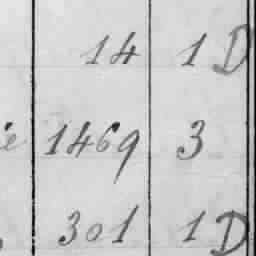 14 1 D
ie 1469 3
301 1 D